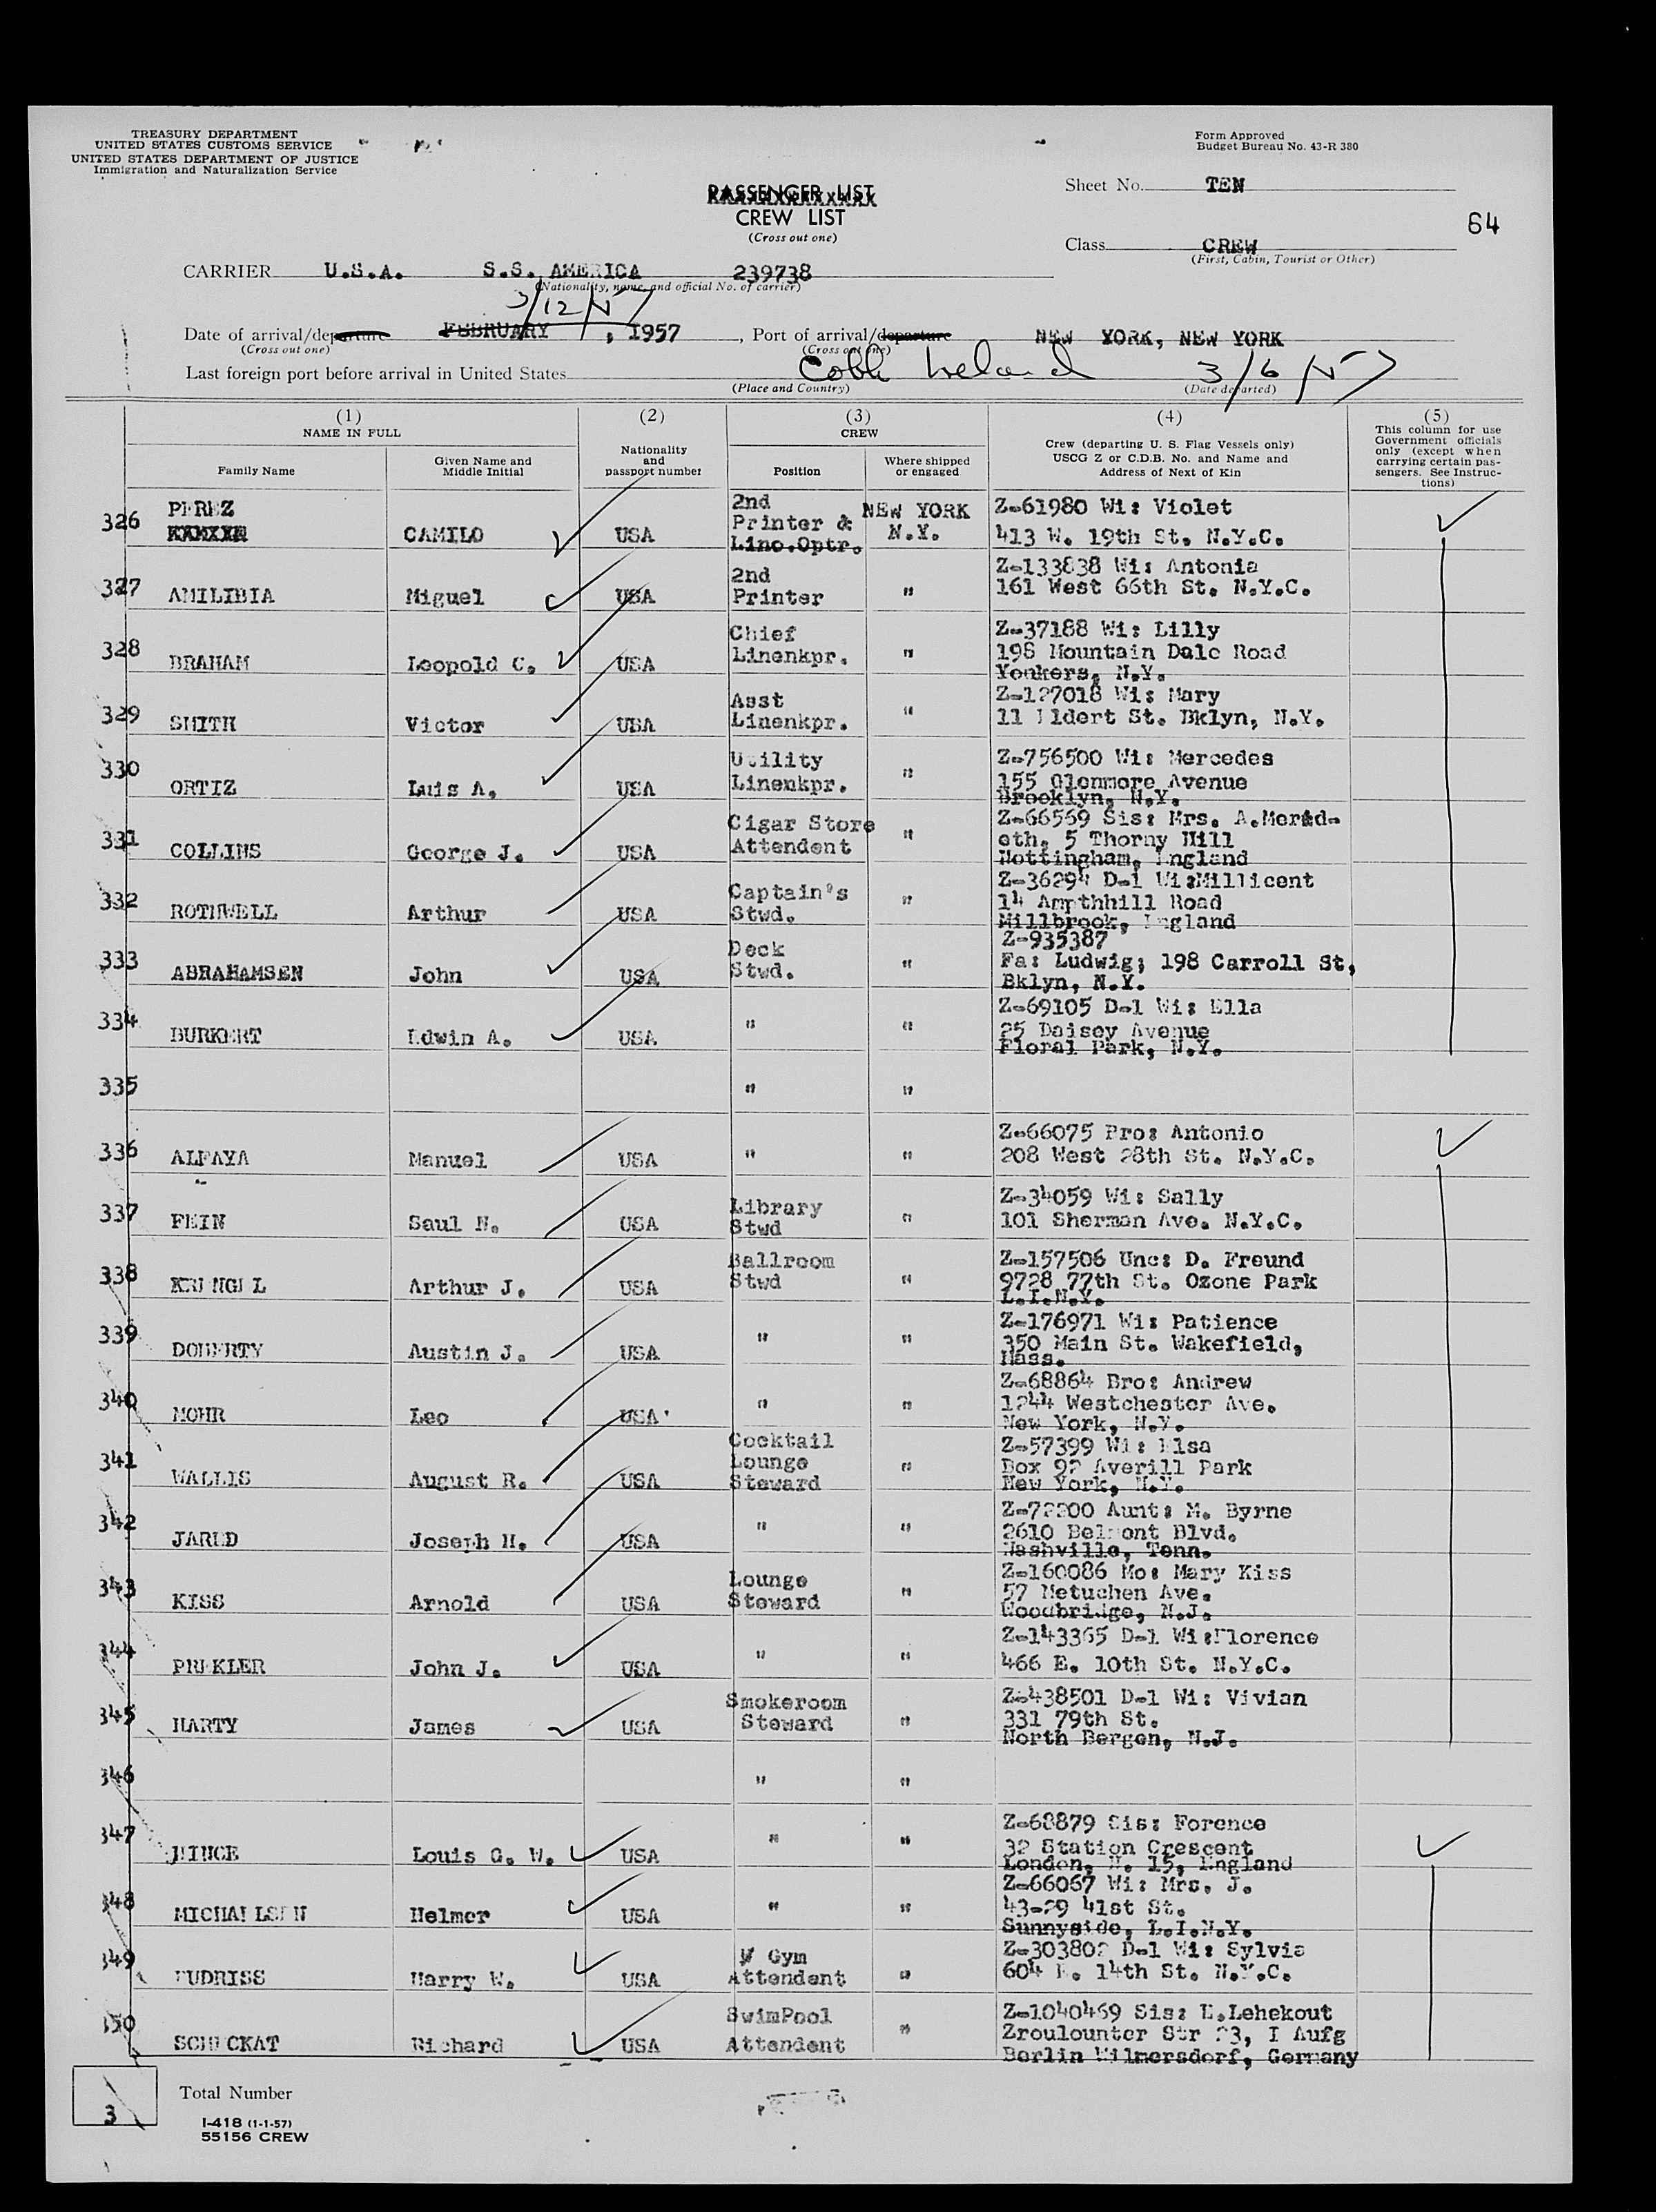 TREASURY DEPARTMENT
UNITED STATES CUSTOMS SERVICE
UNITED STATES DEPARTMENT OF JUSTICE
Immigration and Naturalization Service
Form Approved
Budget Bureau No. 43-R 380
PASSENGER LIST
CREW LIST
(Cross out one)
Sheet No. TEN
64
Class CREW
(First, Cabin, Tourist or Other)
CARRIER U.S.A. S.S. AMERICA 239738
(Nationality, name, and official No. of carrier)
3/12/57
Date of arrival/departure FEBRUARY , 1957 , Port of arrival/departure NEW YORK, NEW YORK
(Cross out one) (Cross out one)
Last foreign port before arrival in United States Cobh Ireland 3/6/57
(Place and Country) (Date departed)
(1) (2) (3) (4) (5)
NAME IN FULL
Family Name
Given Name and Middle Initial
Nationality and passport number
CREW
Position
Where shipped or engaged
Crew (departing U. S. Flag Vessels only)
USCG Z or C.D.B. No. and Name and
Address of Next of Kin
This column for use
Government officials
only (except when
carrying certain pas-
sengers. See Instruc-
tions)
326 PEREZ CAMILO USA 2nd Printer & Lino.Optr. NEW YORK N.Y. Z-61980 Wi: Violet
413 W. 19th St. N.Y.C.
327 AMILIBIA Miguel USA 2nd Printer " Z-133838 Wi: Antonia
161 West 66th St. N.Y.C.
328 BRAHAM Leopold C. USA Chief Linenkpr. " Z-37188 Wi: Lilly
198 Mountain Dale Road
Yonkers, N.Y.
329 SMITH Victor USA Asst Linenkpr. " Z-127018 Wi: Mary
11 Eldert St. Bklyn, N.Y.
330 ORTIZ Luis A. USA Utility Linenkpr. " Z-756500 Wi: Mercedes
155 Glenmore Avenue
Brooklyn, N.Y.
331 COLLINS George J. USA Cigar Store Attendent " Z-66569 Sis: Mrs. A.Mered-
eth, 5 Thorny Hill
Nottingham, England
332 ROTHWELL Arthur USA Captain's Stwd. " Z-36294 D-1 Wi:Millicent
14 Ampthhill Road
Millbrook, England
333 ABRAHAMSEN John USA Deck Stwd. " Z-935387
Fa: Ludwig; 198 Carroll St,
Bklyn, N.Y.
334 BURKERT Edwin A. USA " " Z-69105 D-1 Wi: Ella
25 Daisey Avenue
Floral Park, N.Y.
335 " "
336 ALFAYA Manuel USA " " Z-66075 Bro: Antonio
208 West 28th St. N.Y.C.
337 FEIN Saul N. USA Library Stwd " Z-34059 Wi: Sally
101 Sherman Ave. N.Y.C.
338 Arthur J. USA Ballroom Stwd " Z-157506 Unc: D. Freund
9728 77th St. Ozone Park
L.I.N.Y.
339 DOHERTY Austin J. USA " " Z-176971 Wi: Patience
350 Main St. Wakefield,
Mass.
340 MOHR Leo USA " " Z-68864 Bro: Andrew
1244 Westchester Ave.
New York, N.Y.
341 WALLIS August R. USA Cocktail Lounge Steward " Z-57399 Wi: Elsa
Box 92 Averill Park
New York, N.Y.
342 JARED Joseph H. USA " " Aunt: M. Byrne
2610 Belmont Blvd.
Nashville, Tenn.
343 KISS Arnold USA Lounge Steward " Z-160086 Mo: Mary Kiss
57 Metuchen Ave.
Woodbridge, N.J.
344 PREKLER John J. USA " " Z-143365 D-1 Wi:Florence
466 E. 10th St. N.Y.C.
345 HARTY James USA Smokeroom Steward " Z-438501 D-1 Wi: Vivian
331 79th St.
North Bergen, N.J.
346 " "
347 HINCE Louis G. W. USA " " Z-68879 Sis: Forence
32 Station Crescent
London, N. 15, England
348 MICHAELSEN Helmer USA " " Z-66067 Wi: Mrs. J.
43-29 41st St.
Sunnyside, L.I.N.Y.
349 Harry W. USA Gym Attendent " Z-303802 D-1 Wi: Sylvia
604 E. 14th St. N.Y.C.
350 SCHECKAT Richard USA SwimPool Attendent " Z-1040469 Sis: E.Lehekout
Zroulounter Str 23, I Aufg
Berlin Wilmersdorf, Germany
3
Total Number
I-418 (1-1-57)
55156 CREW